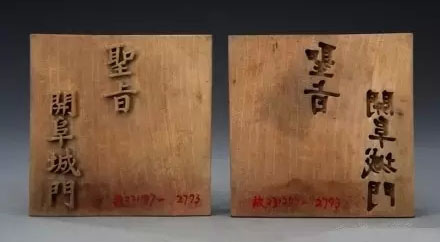 聖旨
開阜城門
2793
聖旨
開阜城門
2793